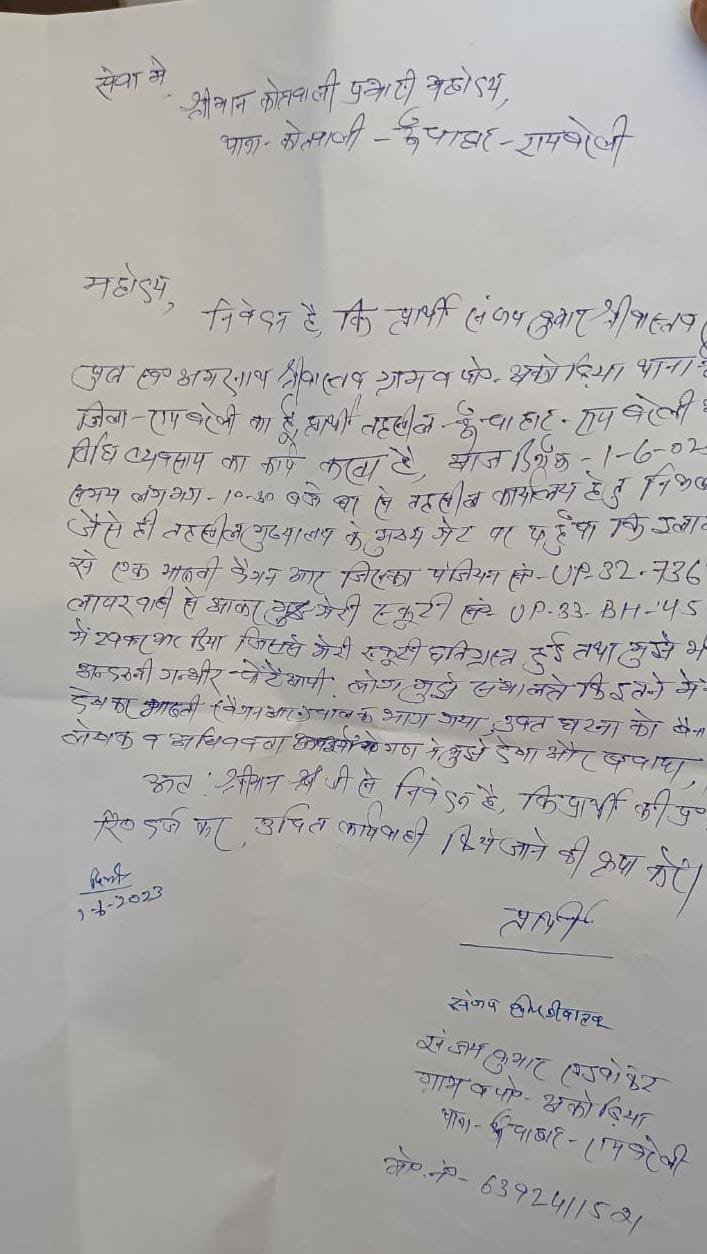 सेवा मे,
श्रीमान कोतवाली प्रभारी महोदय,
थाना- कोतवाली - ऊँचाहार - रायबरेली
महोदय,
निवेदन है, कि प्रार्थी संजय कुमार श्रीवास्तव
पुत्र स्व० अमरनाथ श्रीवास्तव ग्राम व पो०- अकोढ़िया थाना
जिला - रायबरेली का हूँ, प्रार्थी तहसील - ऊँचाहार - रायबरेली
विधि व्यवसाय का कार्य करता है, आज दिनाँक - 1-6-02
समय लगभग - 10-30 बजे घर से तहसील कार्यालय हेतु
जैसे ही तहसील मुख्यालय के मुख्य गेट पर पहुँचा कि
से एक मारुती वैगन आर जिसका पंजियन सं०- UP-32-736
लापरवाही से आकर मेरी स्कूटी सं०- UP-33-BH-45
में टक्कर मार दिया जिससे मेरी स्कूटी क्षतिग्रस्त हुई तथा मुझे
अन्दरूनी गम्भीर चोटें आयी. लोग मुझे संभालते कि इतने में
मारुती वैगनआर चालक भाग गया, उक्त घटना को
लेखक व अधिवक्ता गण ने मुझे देखा और बचाया,
अतः श्रीमान जी से निवेदन है, कि प्रार्थी की
रि० दर्ज कर, उचित कार्यवाही किये जाने की कृपा करें।
1-6-2023
प्रार्थी
संजय श्रीवास्तव
संजय कुमार एडवोकेट
ग्राम व पो०- अकोढ़िया
थाना- ऊँचाहार - रायबरेली
मो०.नं०-